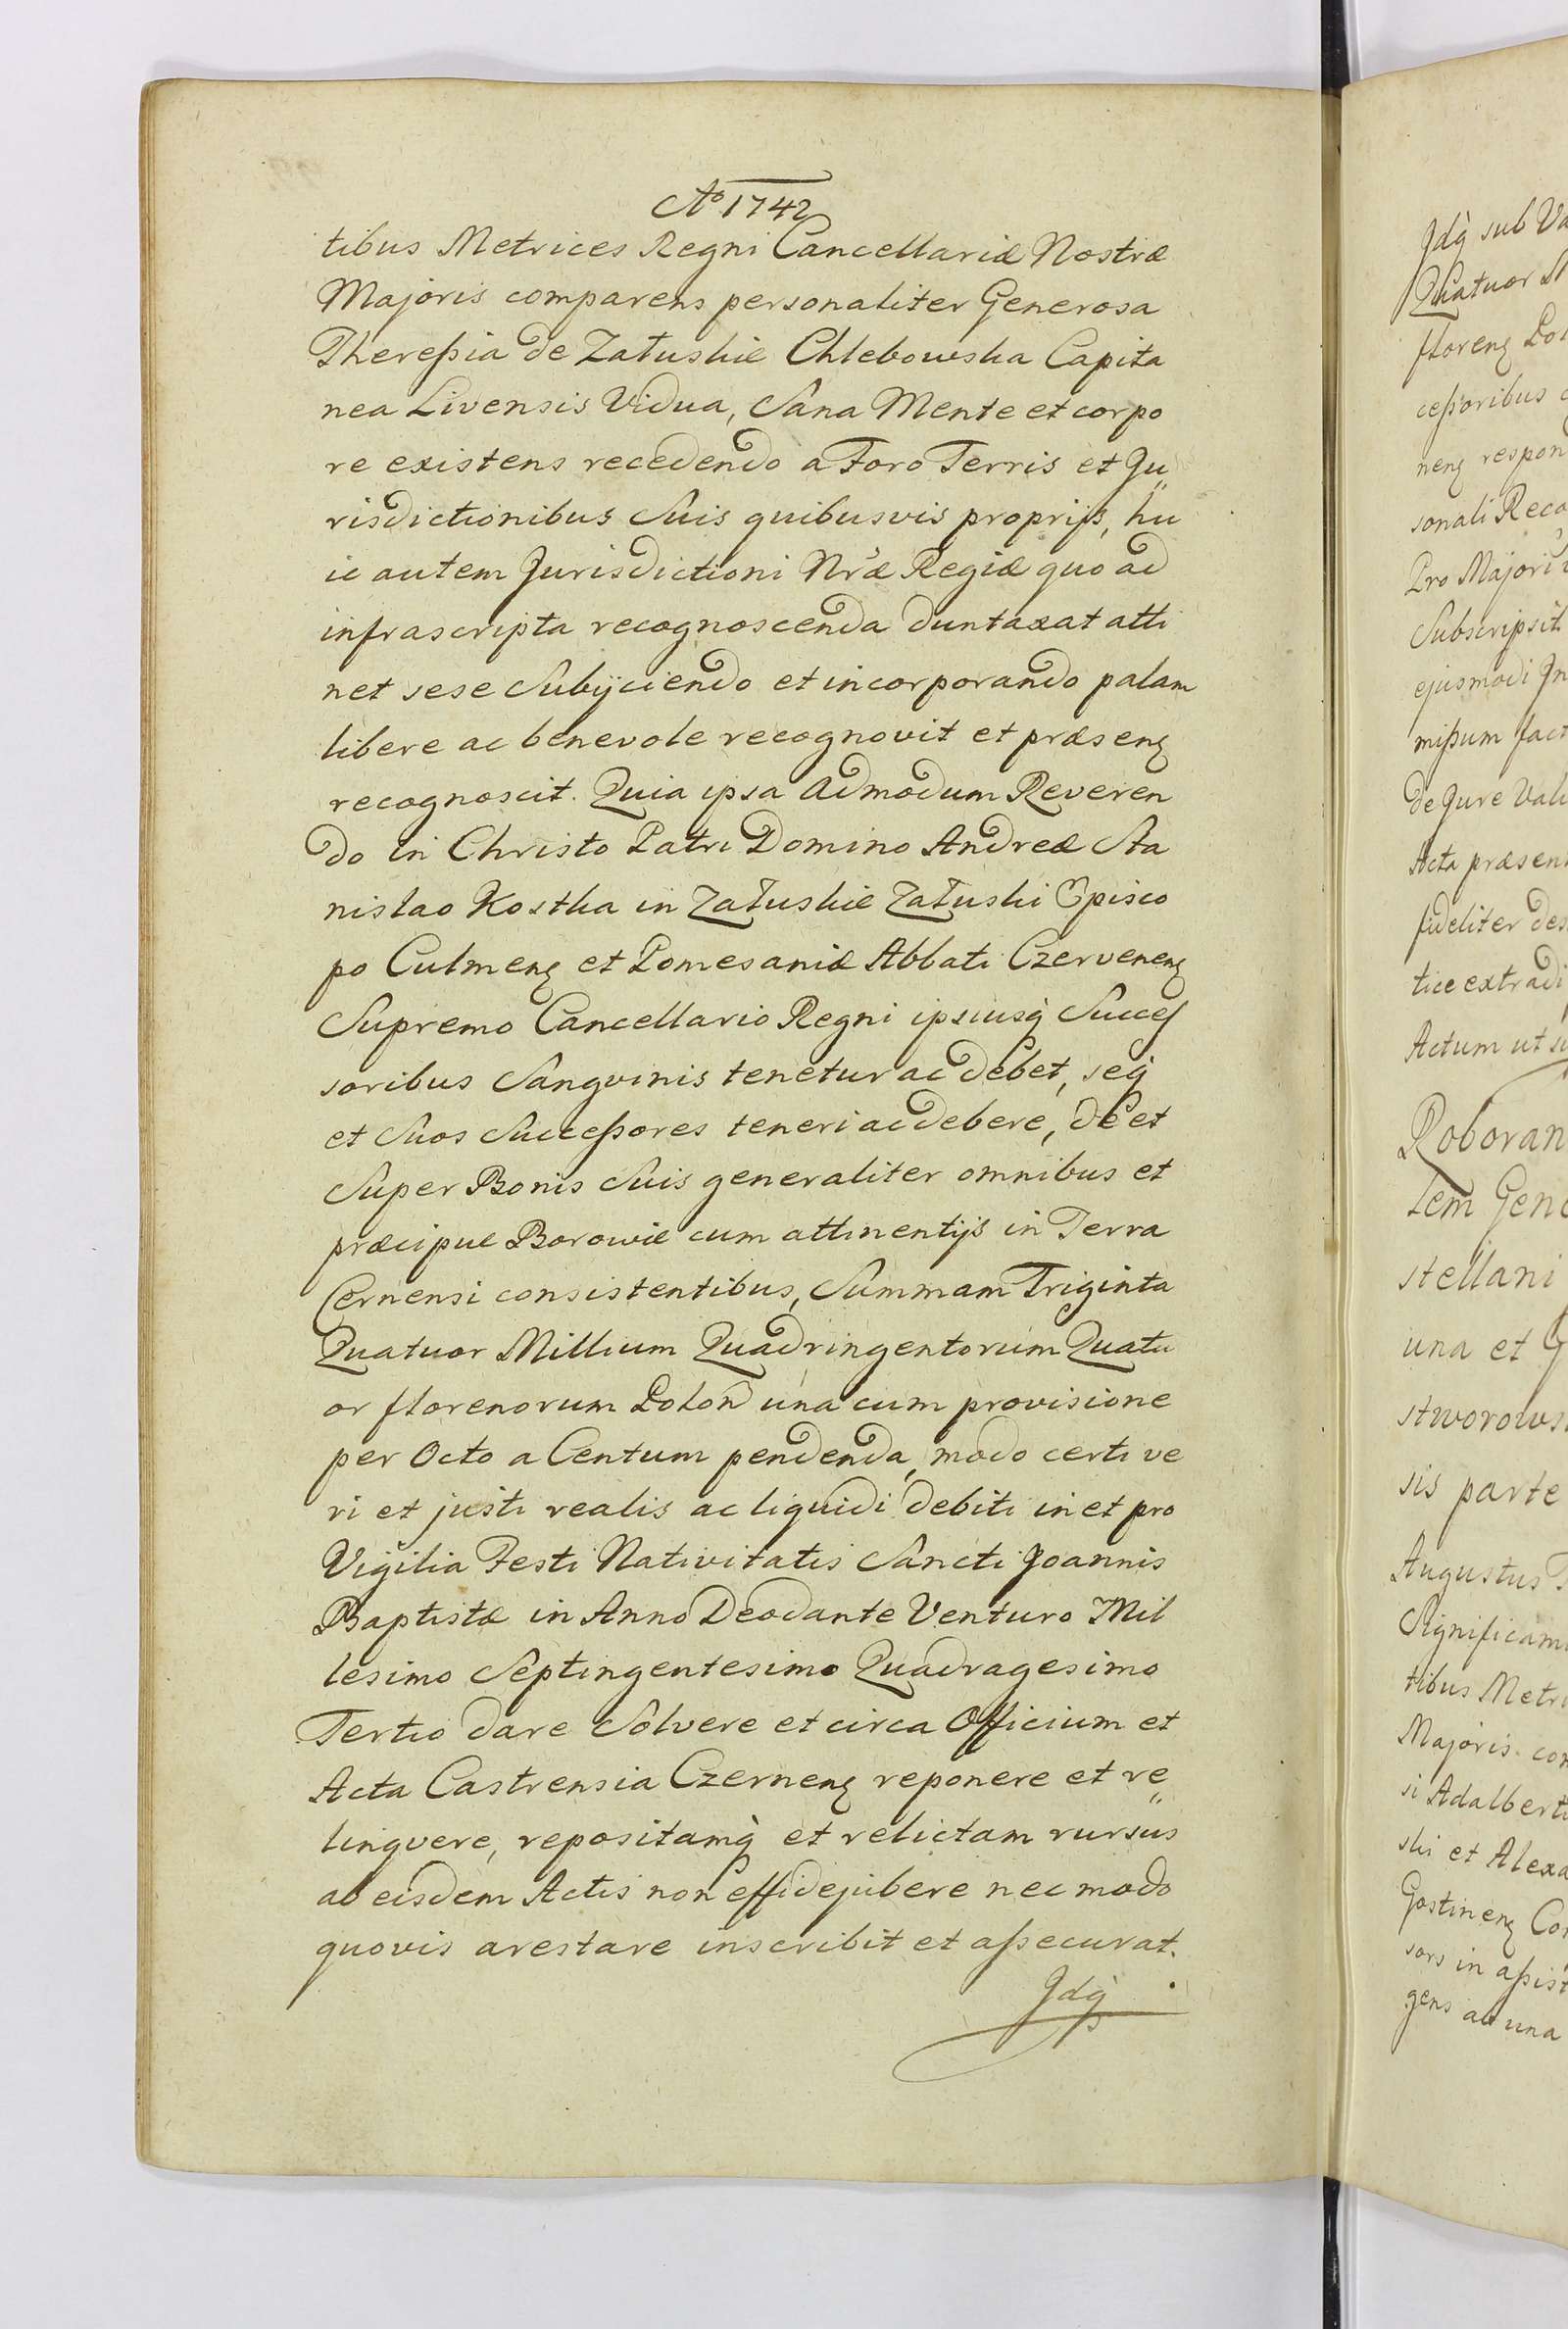 Aº 1742
tibus Metrices Regni Cancellariæ Nostræ
Majoris comparens personaliter Generosa
Theressia de Załuskie Chlebowska Capita
nea Livensis Vidua, Sana Mente et corpo
re existens recedendo a Foro Terris et Ju„
risdictionibus Suis quibusvis proprijs, hu
ic autem Jurisdictioni Nræ Regiæ quo ad
infrascripta recognoscenda duntaxat atti
net sese Subijciendo et incorporando palam
libere ac benevole recognovit et præsenꝫ
recognoscit. Quia ipsa Admodum Reveren
do in Christo Patri Domino Andreæ Sta
nislao Kostka in Załuskie Załuski Episco
po Culmenꝫ et Pomesaniæ Abbati Czervenenꝫ
Supremo Cancellario Regni ipsiusq̀ Succes
soribus Sangvinis tenetur ac debet, seq̀
et Suos Successores teneri ac debere, de et
Super Bonis Suis generaliter omnibus et
præcipue Borowie cum attinentijs in Terra
Cernensi consistentibus, Summam Triginta
Quatuor Millium Quadringentorum Quatu
or florenorum Polon̄ una cum provisione
per Octo a Centum pendenda, modo certi ve
ri et justi realis ac liquidi debiti in et pro
Vigilia Festi Nativitatis Sancti Joannis
Baptistæ in Anno Deo dante Venturo Mil
lesimo Septingentesimo Quadragesimo
Tertio dare Solvere et circa Officium et
Acta Castrensia Czernenꝫ reponere et re„
linqvere, repositamq̀ et relictam rursus
ab eisdem Actis non effidejubere nec modo
quovis arestare inscribit et assecurat.
Jdq̀
Jdq̀ sub Va
Quatuor M
florenꝫ Pol
cessoribus
nenꝫ respon
sonali Reco
Pro Majori
Subscripsit
ejusmodi In
missum fact
de Jure Vali
Acta præsen
fideliter des
tice extradi
Actum ut su
Roboran
lem Gene
stellani
una et G
stworows
sis parte
Augustus T
Significam
tibus Metri
Majoris com
si Adalberti
ski et Alexa
Gostinenꝫ Con
sors in assist
gens ab una